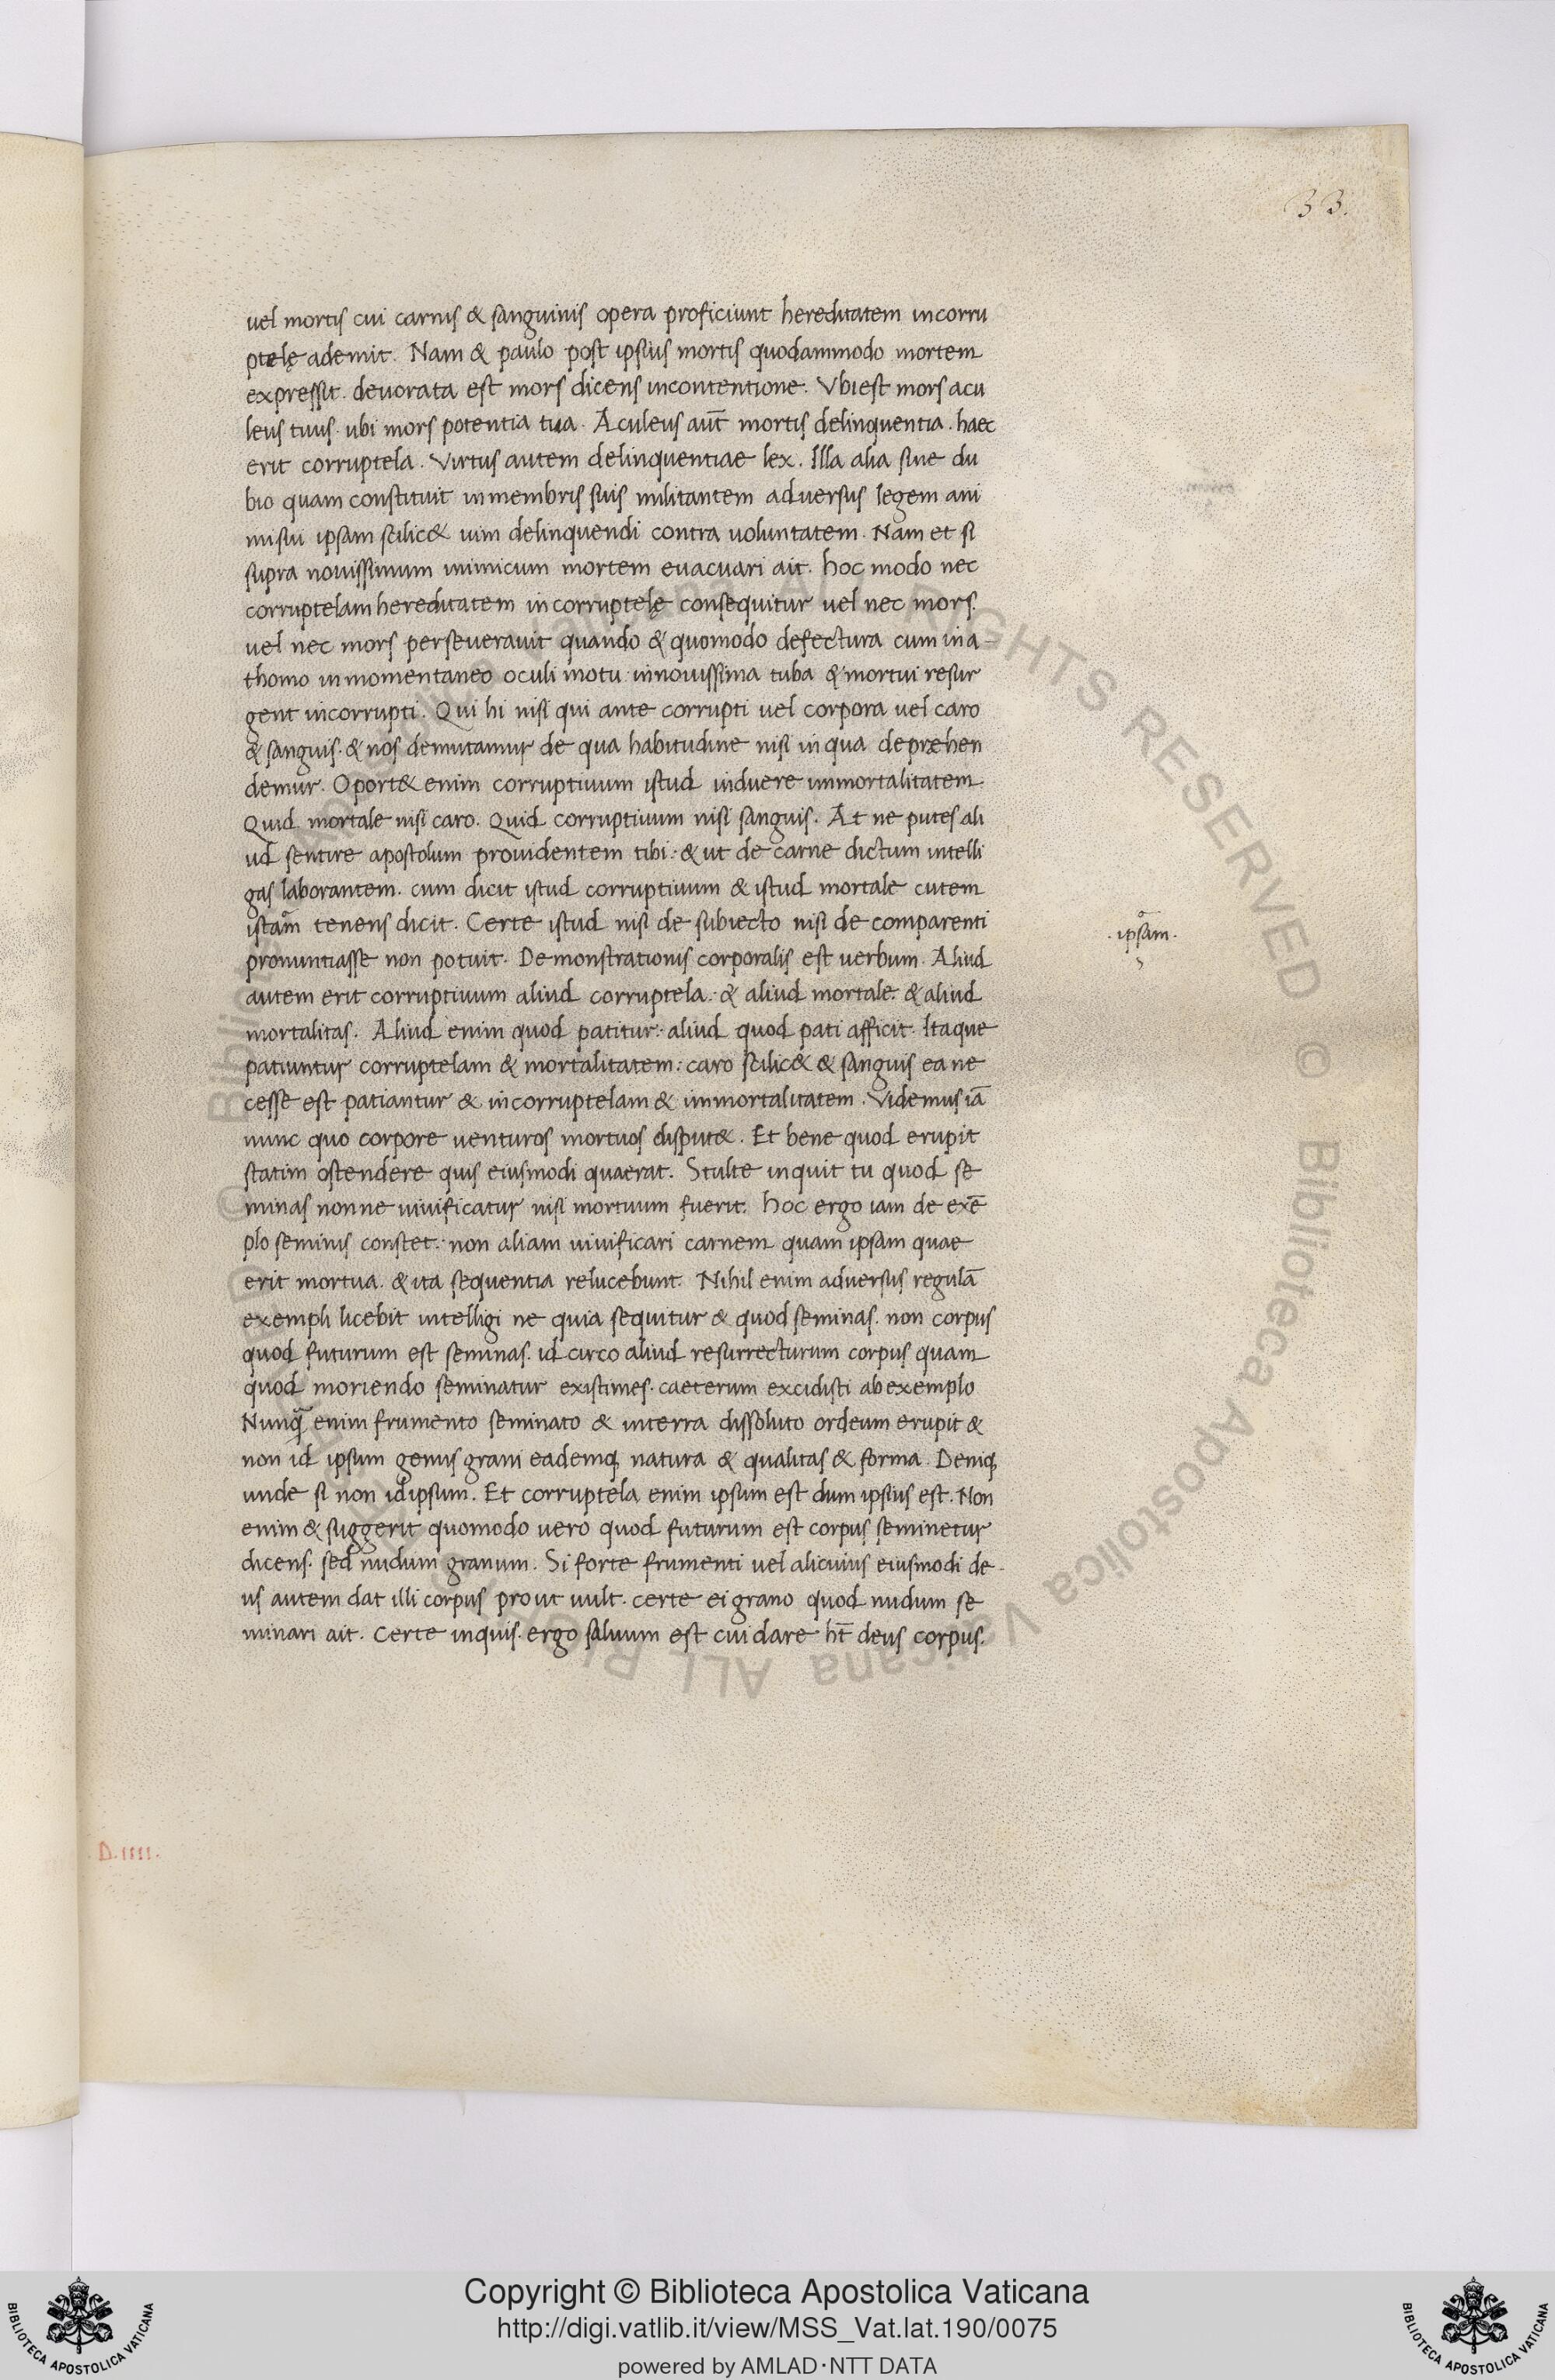 33.
uel mortis cui carnis & sanguinis opera proficiunt hereditatem incorru
ptelę ademit. Nam & paulo post ipsius mortis quodammodo mortem
expressit. deuorata est mors dicens incontentione. Vbi est mors acu
leus tuus. ubi mors potentia tua. Aculeus aut̄ mortis delinquentia. haec
erit corruptela. Virtus autem delinquentiae lex. Illa alia sine du
bio quam constituit inmembris suis militantem aduersus legem ani
mi sui ipsam scilic& uim delinquendi contra uoluntatem. Nam et si
supra nouissimum inimicum mortem euacuari ait. hoc modo nec
corruptelam hereditatem incorruptelę consequitur uel nec mors.
uel nec mors perseuerauit quando & quomodo defectura cum in a-
thomo in momentaneo oculi motu innouissima tuba & mortui resur
gent incorrupti. Qui hi nisi qui ante corrupti uel corpora uel caro
& sanguis. & nos demutamur de qua habitudine nisi in qua depręhen
demur. Oport& enim corruptiuum istud induere immortalitatem.
Quid mortale nisi caro. Quid corruptiuum nisi sanguis. At ne putes ali
ud sentire apostolum prouidentem tibi: & ut de carne dictum intelli
gas laborantem. cum dicit istud corruptiuum & istud mortale cutem
istam tenens dicit. Certe istud nisi de subiecto nisi de comparenti
.ipsam.
pronuntiasse non potuit. Demonstrationis corporalis est uerbum. Aliud
autem erit corruptiuum aliud corruptela: & aliud mortale. & aliud
mortalitas. Aliud enim quod patitur: aliud quod pati afficit. Itaque
patiuntur corruptelam & mortalitatem: caro scilic& & sanguis ea ne
cesse est patiantur & incorruptelam & immortalitatem. Videmus iā
nunc quo corpore uenturos mortuos disput&. Et bene quod erupit
statim ostendere quis eiusmodi quaerat. Stulte inquit tu quod se
minas nonne uiuificatur nisi mortuum fuerit. hoc ergo iam de exē
plo seminis constet: non aliam uiuificari carnem quam ipsam quae
erit mortua. & ita sequentia relucebunt. Nihil enim aduersus regulā
exempli licebit intelligi ne quia sequitur & quod seminas. non corpus
quod futurum est seminas. id circo aliud resurrecturum corpus quam
quod moriendo seminatur existimes. caeterum excidisti ab exemplo
Nunq̄ enim frumento seminato & interra dissoluto ordeum erupit &
non id ipsum genus grani eademq; natura & qualitas & forma. Deniq;
unde si non idipsum. Et corruptela enim ipsum est dum ipsius est. Non
enim & suggerit quomodo uero quod futurum est corpus seminetur
dicens. sed nudum granum. Si forte frumenti uel alicuius eiusmodi de-
us autem dat illi corpus prout uult. certe ei grano quod nudum se
minari ait. Certe inquis. ergo saluum est cui dare ht̄ deus corpus.
D.IIII.
Copyright © Biblioteca Apostolica Vaticana
http://digi.vatlib.it/view/MSS_Vat.lat.190/0075
powered by AMLAD·NTT DATA